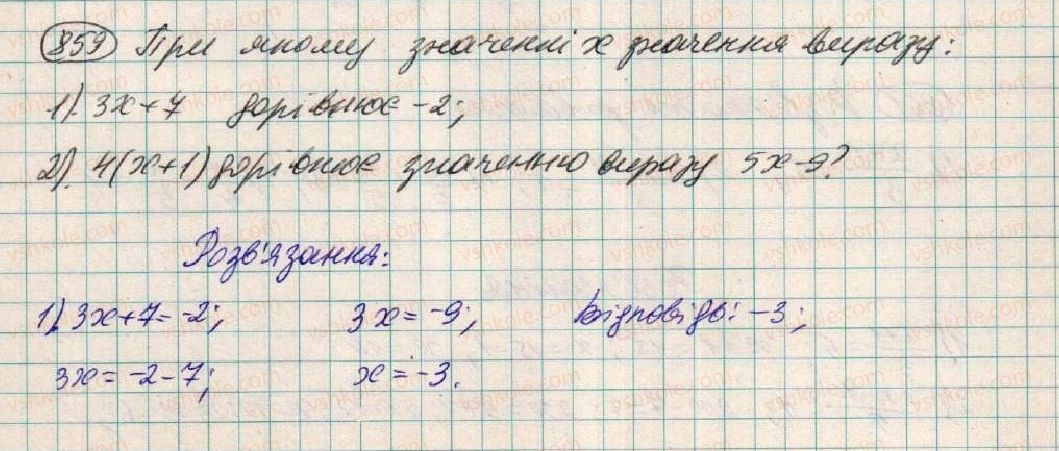 859 При якому значенні x значення виразу:
1). 3x+7 дорівнює -2;
2). 4(x+1) дорівнює значенню виразу 5x-9?
Розв'язання:
1). 3x+7=-2; 3x=-9; Відповідь: -3;
3x=-2-7; x=-3.